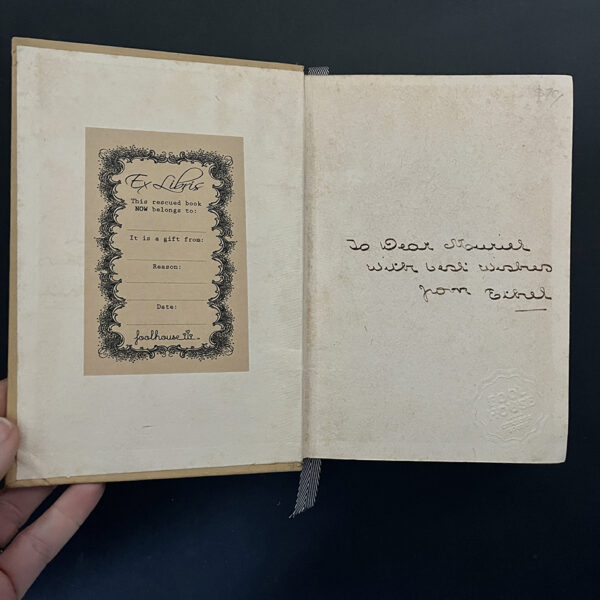 Ex Libris
This rescued book
NOW belongs to:
It is a gift from:
Reason:
Date:
foolhouse
To Dear Mauriel
with best wishes
from Ethel